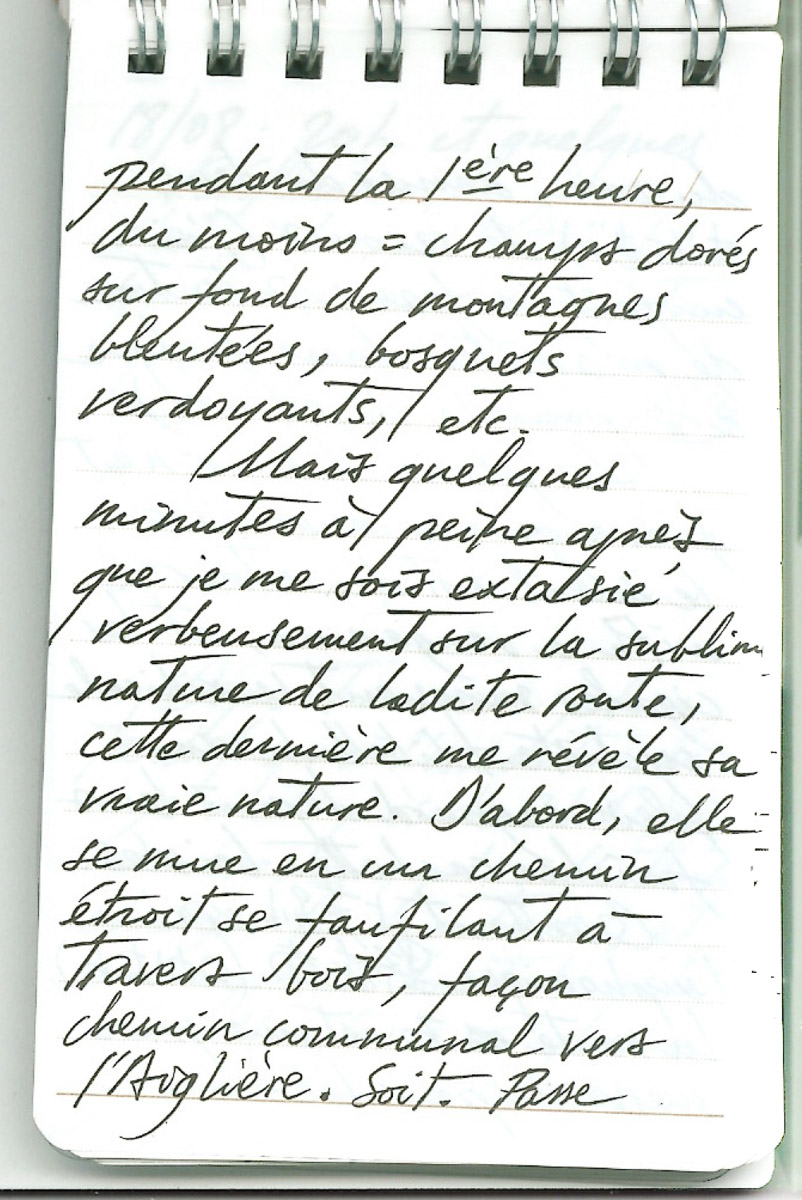 pendant la 1ère heure,
du moins = champs dorés
sur fond de montagnes
bleutées, bosquets
verdoyants, etc.
Mais quelques
minutes à peine après
que je me sois extasié
verbeusement sur la sublim
nature de ladite route,
cette dernière me révèle sa
vraie nature. D'abord, elle
se mue en un chemin
étroit se faufilant à
travers bois, façon
chemin communal vers
l'Aiglière. Soit. Passe